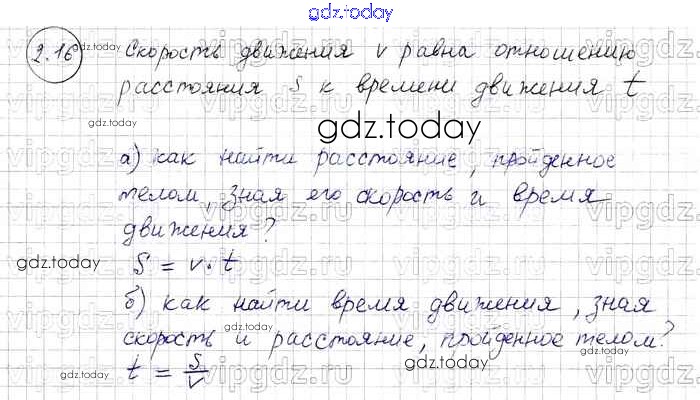 gdz.today
2.16 Скорость движения v равна отношению
расстояния S к времени движения t
а) как найти расстояние, пройденное
телом, зная его скорость и время
движения?
S = v · t
б) как найти время движения, зная
скорость и расстояние, пройденное телом?
t = S/v
gdz.today
gdz.today
gdz.today
gdz.today
gdz.today
gdz.today
gdz.today
gdz.today
gdz.today
gdz.today